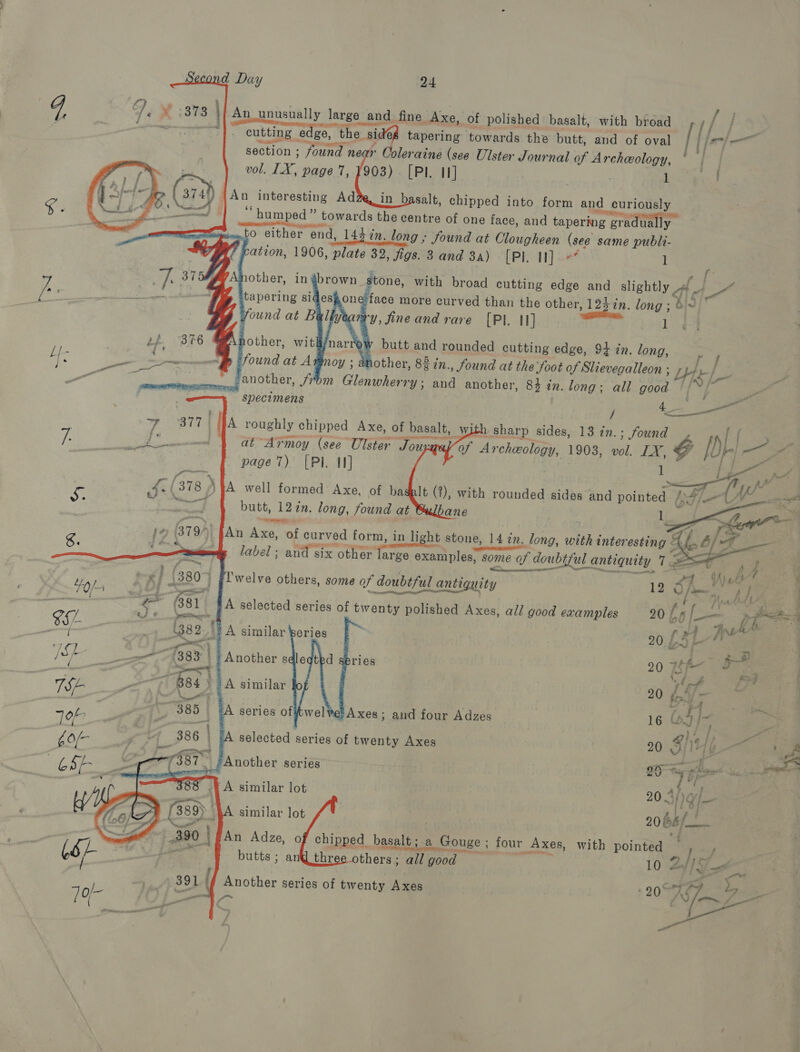 Second Day 24
373 An unusually large and fine Axe, of polished basalt, with broad
cutting edge, the sides tapering towards the butt, and of oval
section ; found near Coleraine (see Ulster Journal of Archæology,
vol. IX, page 7, 1903) [Pl. II] 1
374 An interesting Adze, in basalt, chipped into form and curiously
“humped” towards the centre of one face, and tapering gradually
to either end, 14½ in. long ; found at Clougheen (see same publi-
cation, 1906, plate 32, figs. 3 and 3A) [Pl. II] 1
7. 375 Another, in brown stone, with broad cutting edge and slightly
tapering sides, one face more curved than the other, 12½ in. long ;
found at Ballyearry, fine and rare [Pl. II] 1
376 Another, with narrow butt and rounded cutting edge, 9½ in. long,
found at Armoy ; another, 8¾ in., found at the foot of Slievegalleon ;
another, from Glenwherry ; and another, 8½ in. long ; all good
specimens 4
7. 377 A roughly chipped Axe, of basalt, with sharp sides, 13 in. ; found
at Armoy (see Ulster Journal of Archæology, 1903, vol. IX,
page 7) [Pl. II] 1
378 A well formed Axe, of basalt (?), with rounded sides and pointed
butt, 12 in. long, found at Culbane 1
8. 379 An Axe, of curved form, in light stone, 14 in. long, with interesting
label ; and six other large examples, some of doubtful antiquity 7
40/- 380 Twelve others, some of doubtful antiquity 12
85/- 381 A selected series of twenty polished Axes, all good examples 20
382 A similar series 20
75/- 383 Another selected series 20
75/- 384 A similar lot 20
70/- 385 A series of twelve Axes ; and four Adzes 16
60/- 386 A selected series of twenty Axes 20
65/- 387 Another series 20
388 A similar lot 20
389 A similar lot 20
65/- 390 An Adze, of chipped basalt ; a Gouge ; four Axes, with pointed
butts ; and three others ; all good 10
70/- 391 Another series of twenty Axes 20